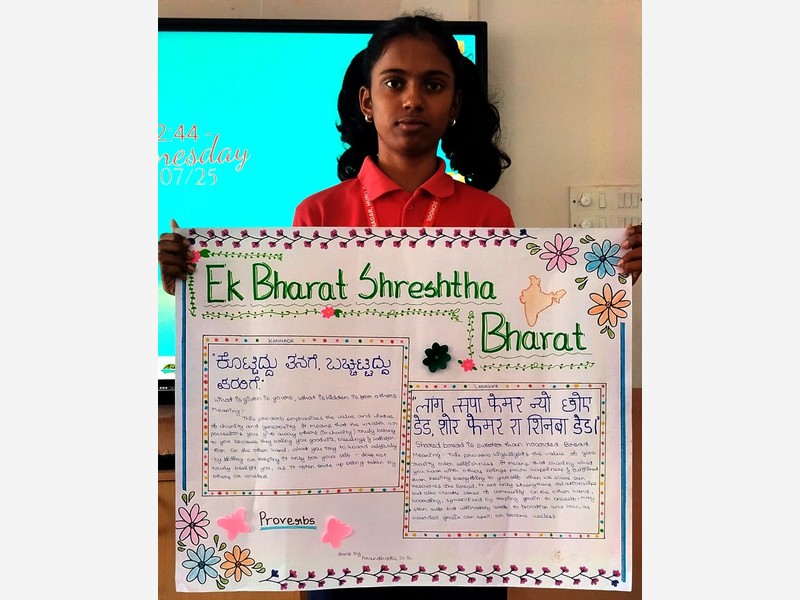 2:44
nesday
07/25
SCHOOL
Ek Bharat Shreshtha
Bharat
KANNADA
"ಕೊಟ್ಟಿದ್ದು ತನಗೆ, ಬಚ್ಚಿಟ್ಟಿದ್ದು
ಪರರಿಗೆ."
What is given is yours, what is hidden is for others
Meaning:
This proverb emphasizes the value and virtue
of charity and generosity. It means that the wealth or
possessions you give away others (in charity) truly belong
to you because they bring you good will, blessings &
On the other hand, what you try to
by hiding or keeping it only for your self - does not
truly benefit you, as it often ends up being taken by
others or wasted.
Ladakhi
"लाग त्सपा फेमर न्यो छोए
डेड, शोर फेमर रा शिनबा डेड।"
Shared bread is sweeter than hoarded bread
Meaning: This proverb highlights the value of
over selfishness. It means that sharing what
you have with others brings more happiness &
than keeping everything to yourself. when we share our
resources like bread, it not only strengthens relationships
but also creates sense of community. On the other hand,
hoarding, symbolised by keeping grain to oneself, may
seem safe but ultimately leads to isolation and loss, as
hoarded grain can spoil or become useless.
Proverbs
done by